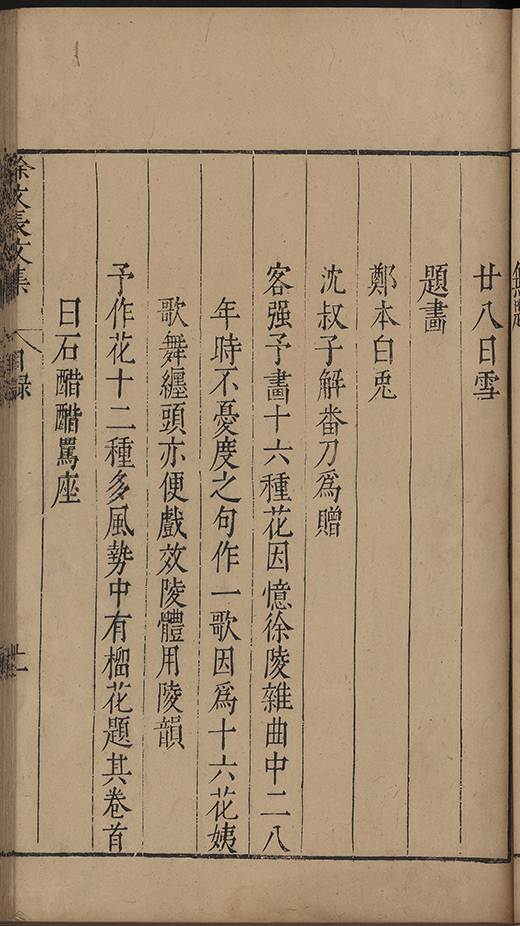 廿八日雪
題畫
鄭本白兎
沈叔子解番刀爲贈
客强予畫十六種花因憶徐陵雜曲中二八
年時不憂度之句作一歌因爲十六花姨
歌舞纏頭亦便戲效陵體用陵韻
予作花十二種多風勢中有榴花題其卷首
曰石醋醋罵座
徐文長文集
目録